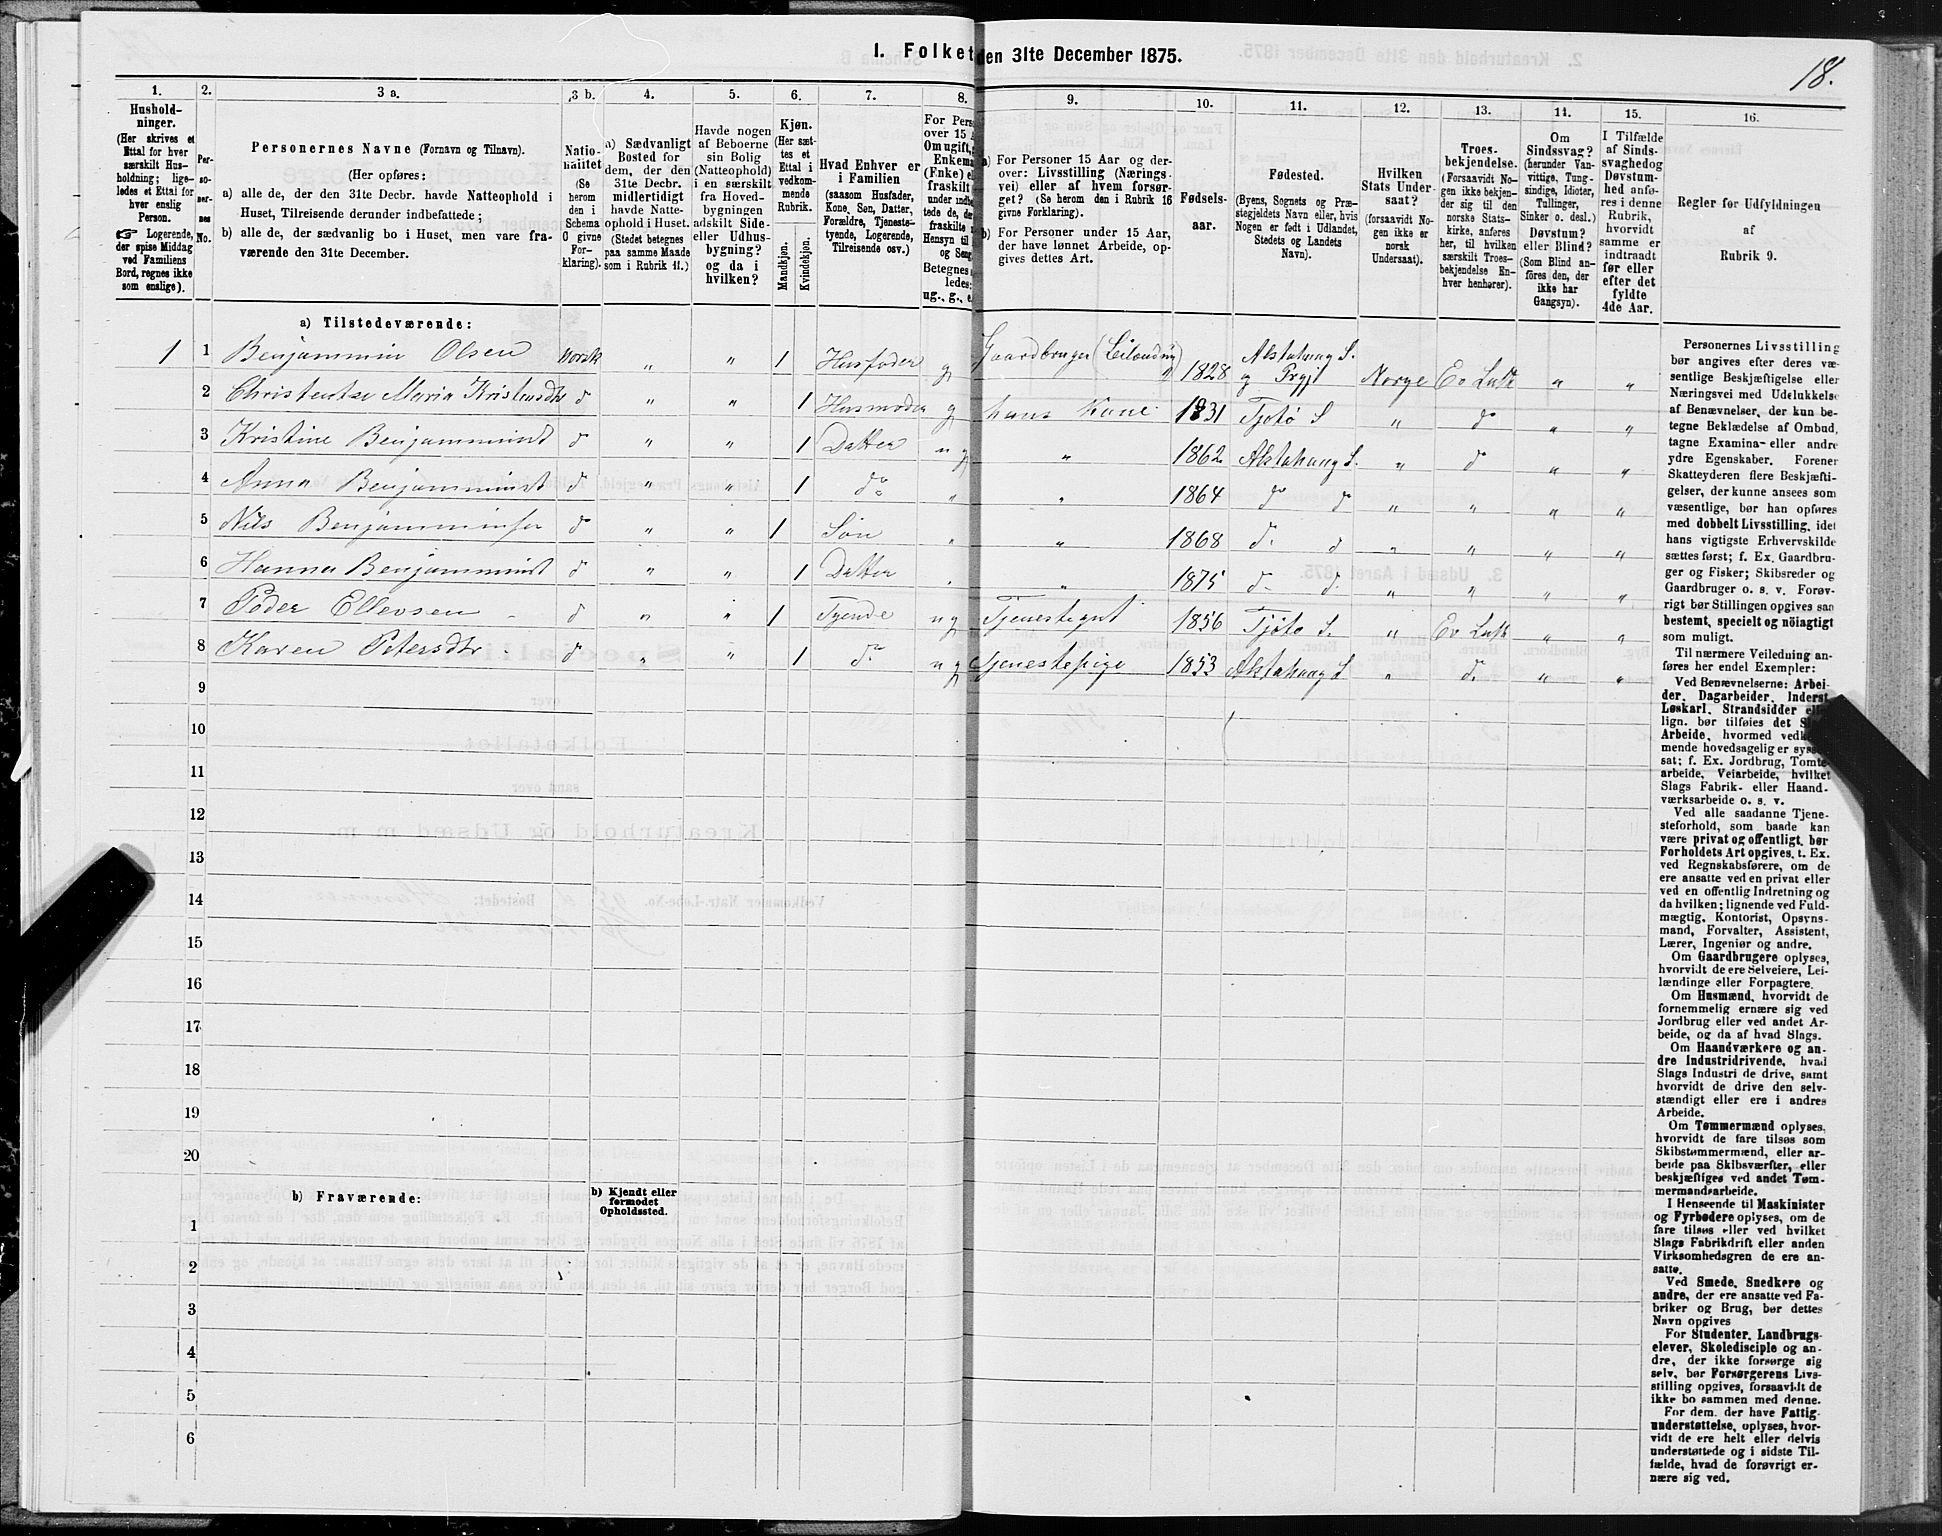 I. Folket
den 31te December 1875.
18.
1.
Hushold-
ninger.
(Her skrives et
Ettal for hver
særskilt Hus-
holdning; lige-
ledes et Ettal for
hver enslig
Person.
☞ Logerende,
der spise Middag
ved Familiens
Bord, regnes ikke
som enslige).
2.
Per-
so-
ner-
nes
No.
3 a.
Personernes Navne (Fornavn og Tilnavn).
(Her opføres:
a) alle de, der den 31te Decbr. havde Natteophold i
Huset, Tilreisende derunder indbefattede;
b) alle de, der sædvanlig bo i Huset, men vare fra-
værende den 31te December.
3 b.
Natio-
nalitet
(Se
herom
den i
Schema
G givne
For-
klaring).
4.
a) Sædvanligt
Bosted for
dem, der den
31te Decbr.
midlertidigt
havde Natte-
ophold i Huset.
(Stedet betegnes
paa samme Maade
som i Rubrik 11.)
5.
Havde nogen
af Beboerne
sin Bolig
(Natteophold)
i en særskilt
fra Hoved-
bygningen
adskilt Side-
eller Udhus-
bygning?
og da i
hvilken?
6.
Kjøn.
(Her sæt-
tes et
Ettal i
vedkom-
mende
Rubrik.
Mandkjøn.
Kvindekjøn.
7.
Hvad Enhver er
i Familien
(saasom Husfader,
Kone, Søn, Datter,
Forældre, Tjeneste-
tyende, Logerende,
Tilreisende osv.)
8.
For Pers
over 15
Om ugift,
Enkema
(Enke) el
fraskilt
der unde
tede de, de
fraskilte
Hensyn til
og Seng
Betegnes
ledes:
ug., g., e.
9.
a) For Personer 15 Aar og der-
over: Livsstilling (Nærings-
vei) eller af hvem forsør-
get? (Se herom den i Rubrik 16
givne Forklaring).
b) For Personer under 15 Aar,
der have lønnet Arbeide, op-
gives dettes Art.
10.
Fødsels-
aar.
11.
Fødested.
(Byens, Sognets og Præ-
stegjeldets Navn eller, hvis
Nogen er født i Udlandet,
Stedets og Landets
Navn).
12.
Hvilken
Stats Under-
saat?
(forsaavidt No-
gen ikke er
norsk
Undersaat).
13.
Troes-
bekjendelse.
(Forsaavidt No-
gen ikke bekjen-
der sig til den
norske Stats-
kirke, anføres
her, til hvilken
særskilt Troes-
bekjendelse En-
hver henhører).
14.
Om
Sindssvag?
(herunder Van-
vittige, Tung-
sindige, Idioter,
Tullinger,
Sinker o. desl.)
Døvstum?
eller Blind?
(Som Blind an-
føres den, der
ikke har
Gangsyn).
15.
I Tilfælde
af Sinds-
svaghed og
Døvstum-
hed anfø-
res i denne
Rubrik,
hvorvidt
samme er
indtraadt
før eller
efter det
fyldte
4de Aar.
16.
Regler før Udfyldningen
af
Rubrik 9.
a) Tilstedeværende:
1 1 Benjammin Olsen Norsk „ „ 1 Husfader g Gaardbruger (Leilænding) 1828 Alstahoug S. og Prgjl Norge Ev Luth „ „
2 Christentse Maria Kristensdtr do „ „ 1 Husmoder g hans Kone 1831 Tjøtø S „ do „ „
3 Kristine Benjamminsd do „ „ 1 Datter ug „ 1862 Alstahoug S. „ do „ „
4 Anna Benjamminsd do „ „ 1 do „ „ 1864 do do „ „ „ „
5 Nils Benjamminsen do „ „ 1 Søn „ „ 1868 do do „ „ „ „
6 Hanna Benjamminsd do „ „ 1 Datter „ „ 1875 do do „ „ „ „
7 Peder Ellevsen do „ „ 1 Tyende ug Tjenestegut 1856 Tjøtø S. „ Ev Luth „ „
8 Karen Petersdtr do „ „ 1 do ug Tjenestepige 1853 Alstahoug S „ do „ „
9
10
11
12
13
14
15
16
17
18
19
20
b) Fraværende:
b) Kjendt eller
formodet
Opholdssted.
1
2
3
4
5
6
Personernes Livsstilling
bør angives efter deres væ-
sentlige Beskjæftigelse eller
Næringsvei med Udelukkelse
af Benævnelser, der kun be-
tegne Beklædelse af Ombud,
tagne Examina- eller andre
ydre Egenskaber. Forener
Skatteyderen flere Beskjæfti-
gelser, der kunne ansees som
væsentlige, bør han opføres
med dobbelt Livsstilling, idet
hans vigtigste Erhvervskilde
sættes først; f. Ex. Gaardbru-
ger og Fisker; Skibsreder og
Gaardbruger o. s. v. Forøv-
rigt bør Stillingen opgives saa
bestemt, specielt og nöiagtigt
som muligt.
Til nærmere Veiledning an-
føres her endel Exempler:
Ved Benævnelserne: Arbei-
der, Dagarbeider, Inderst,
Løskarl, Strandsidder el
lign. bør tilføies det S
Arbeide, hvormed ved
mende hovedsagelig er sys
sat; f. Ex. Jordbrug, Tomte-
arbeide, Veiarbeide, hvilket
Slags Fabrik- eller Haand-
værksarbeide o. s. v.
Ved alle saadanne Tjene-
steforhold, som baade kan
være privat og offentligt, bør
Forholdets Art opgives, t. Ex.
ved Regnskabsførere, om de
ere ansatte ved en privat eller
ved en offentlig Indretning og
da hvilken; lignende ved Fuld-
mægtig, Kontorist, Opsyns-
mand, Forvalter, Assistent,
Lærer, Ingeniør og andre.
Om Gaardbrugere oplyses,
hvorvidt de ere Selveiere, Lei-
lændinge eller Forpagtere.
Om Husmænd, hvorvidt de
fornemmelig ernære sig ved
Jordbrug eller ved andet Ar-
beide, og da af hvad Slags.
Om Haandværkere og an-
dre Industridrivende, hvad
Slags Industri de drive, samt
hvorvidt de drive den selv-
stændigt eller ere i andres
Arbeide.
Om Tømmermænd oplyses,
hvorvidt de fare tilsøs som
Skibstømmermænd, eller ar-
beide paa Skibsværfter, eller
beskjæftiges ved andet Tøm-
mermandsarbeide.
I Henseende til Maskinister
og Fyrbødere oplyses, om de
fare tilsøs eller ved hvilket
Slags Fabrikdrift eller anden
Virksomhedsgren de ere an-
satte.
Ved Smede, Snedkere og
andre, der ere ansatte ved Fa-
briker og Brug, bør dettes
Navn opgives
For Studenter, Landbrugs-
elever, Skoledisciple og an-
dre, der ikke forsørge sig
selv, bør Forsørgerens Livs-
stilling opgives, forsaavidt de
ikke bo sammen med denne.
For dem, der have Fattig-
understøttelse, oplyses, hvor-
vidt de ere helt eller delvis
understøttede og i sidste Til-
fælde, hvad de forøvrigt er-
nære sig ved.